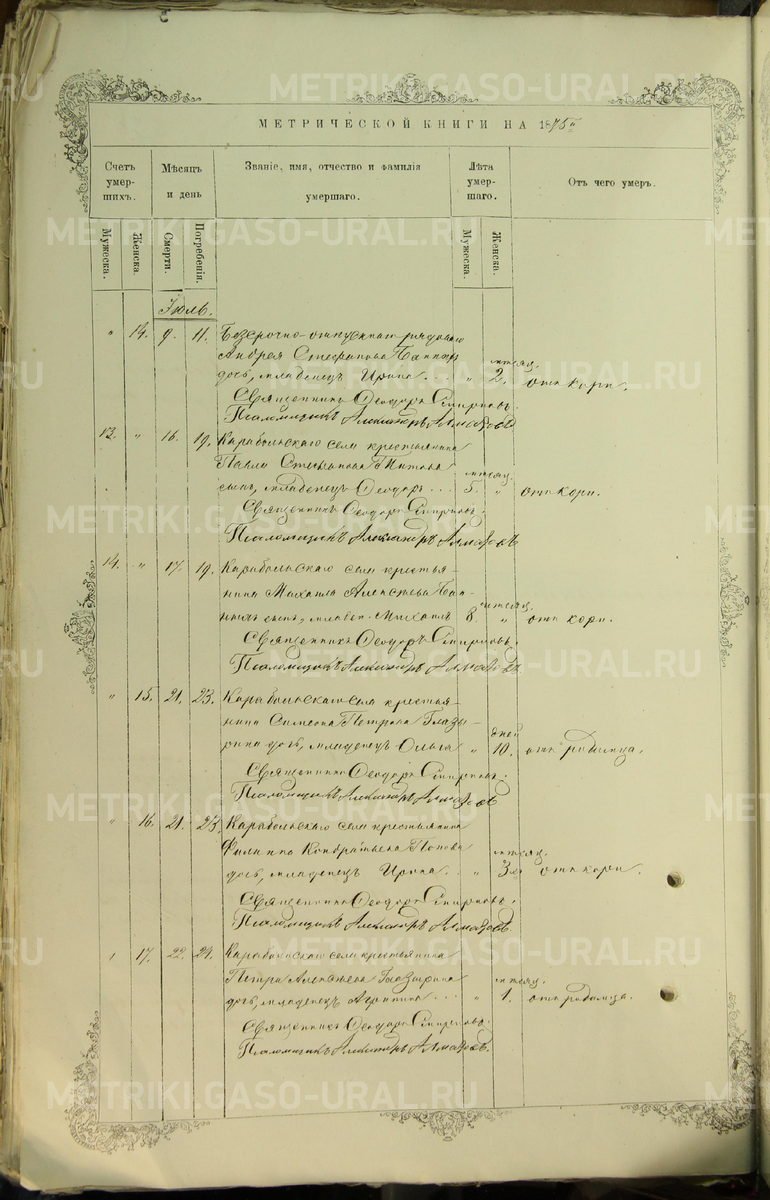 МЕТРИЧЕСКОЙ КНИГИ НА 1875 г.
Счетъ умер-шихъ.
Мѣсяцъ и день
Званіе, имя, отчество и фамилія умершаго.
Лѣта умер-шаго.
Отъ чего умеръ.
Мужеска.
Женска.
Смерти.
Погребенія.
Мужеска.
Женска.
Іюль.
" 14. 9. 11. Безсрочно-отпускнаго рядоваго
Андрея Стефанова дочь, младенецъ Ирина. " мѣсяц. 2. отъ кори.
Священникъ Ѳеодоръ Смирновъ.
Псаломщикъ Александръ Алмазовъ
13. " 16. 19. Карабольскаго села крестьянина
Павла Титова
сынъ, младенецъ Ѳеодоръ мѣсяц. 5. " отъ кори.
Священникъ Ѳеодоръ Смирновъ.
Псаломщикъ Александръ Алмазовъ
14. " 17. 19. Карабольскаго села крестья-
нина Михаила Алексѣева
сынъ, младен. Михаилъ мѣсяц. 8 " отъ кори.
Священникъ Ѳеодоръ Смирновъ.
Псаломщикъ Александръ Алмазовъ.
" 15. 21. 23. Карабольскаго села крестья-
нина Симеона Петрова Глазы-
рина дочь, младенецъ Ольга " дней 10. отъ родимца.
Священникъ Ѳеодоръ Смирновъ.
Псаломщикъ Александръ Алмазовъ
" 16. 21. 23. Карабольскаго села крестьянина
Филиппа Кондратьева Попова
дочь, младенецъ Ирина. " мѣсяц. 3. отъ кори.
Священникъ Ѳеодоръ Смирновъ.
Псаломщикъ Александръ Алмазовъ.
17. 22. 24. Карабольскаго села крестьянина
Петра Алексѣева Глазырина
дочь, младенецъ Агрипина " мѣсяц. 1. отъ родимца.
Священникъ Ѳеодоръ Смирновъ.
Псаломщикъ Александръ Алмазовъ.
METRIKI.GASO-URAL.RU